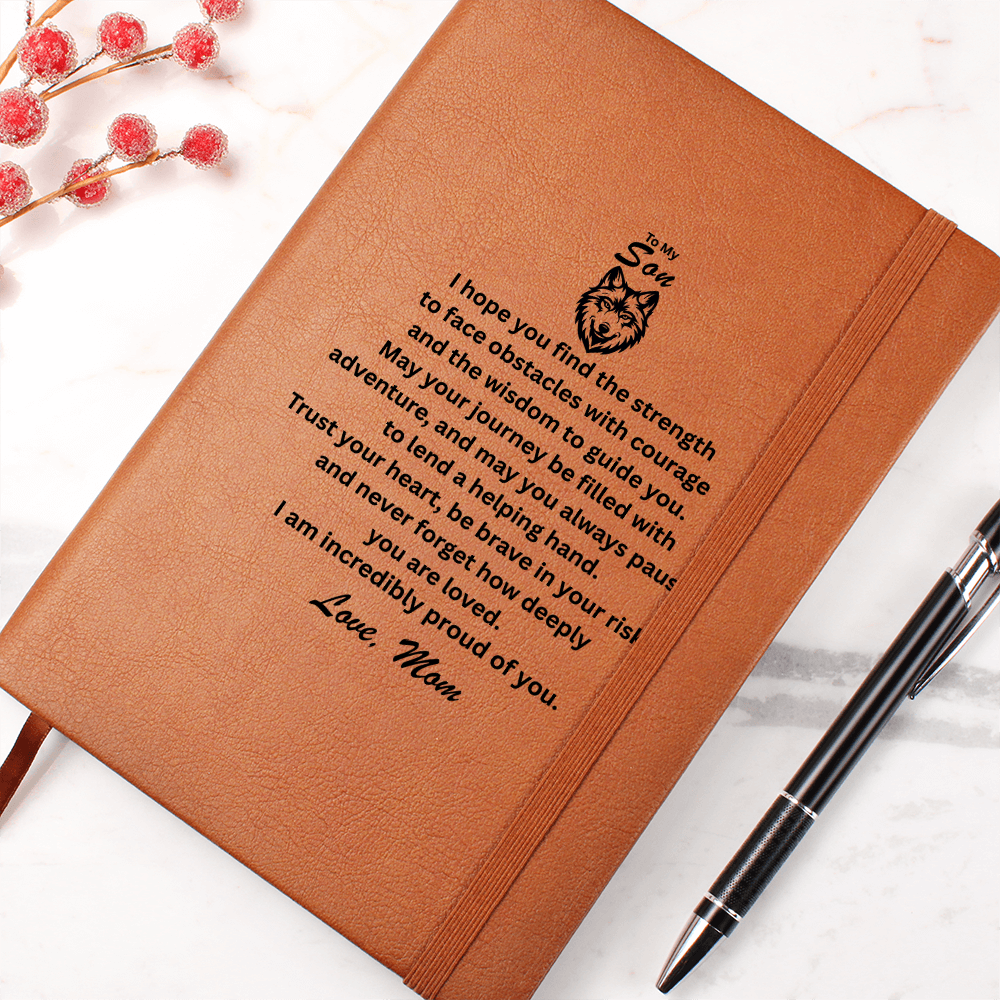 To My
Son
I hope you find the strength
to face obstacles with courage
and the wisdom to guide you.
May your journey be filled with
adventure, and may you always paus
to lend a helping hand.
Trust your heart, be brave in your risk
and never forget how deeply
you are loved.
I am incredibly proud of you.
Love, Mom